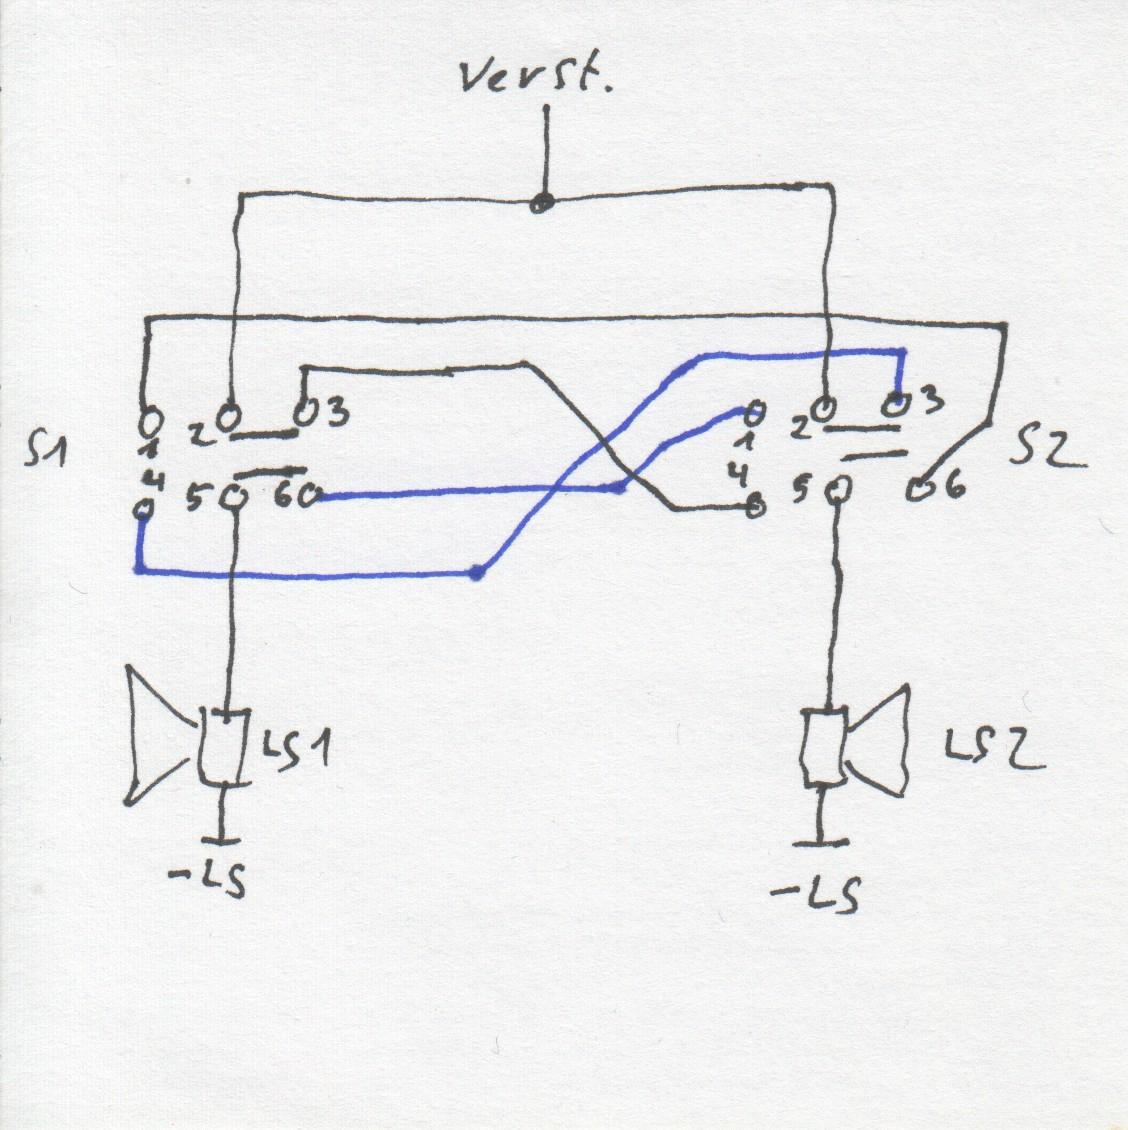 Verst.
1 2 3
S1
4 5 6
1 2 3
S2
4 5 6
LS1
LS2
-LS
-LS